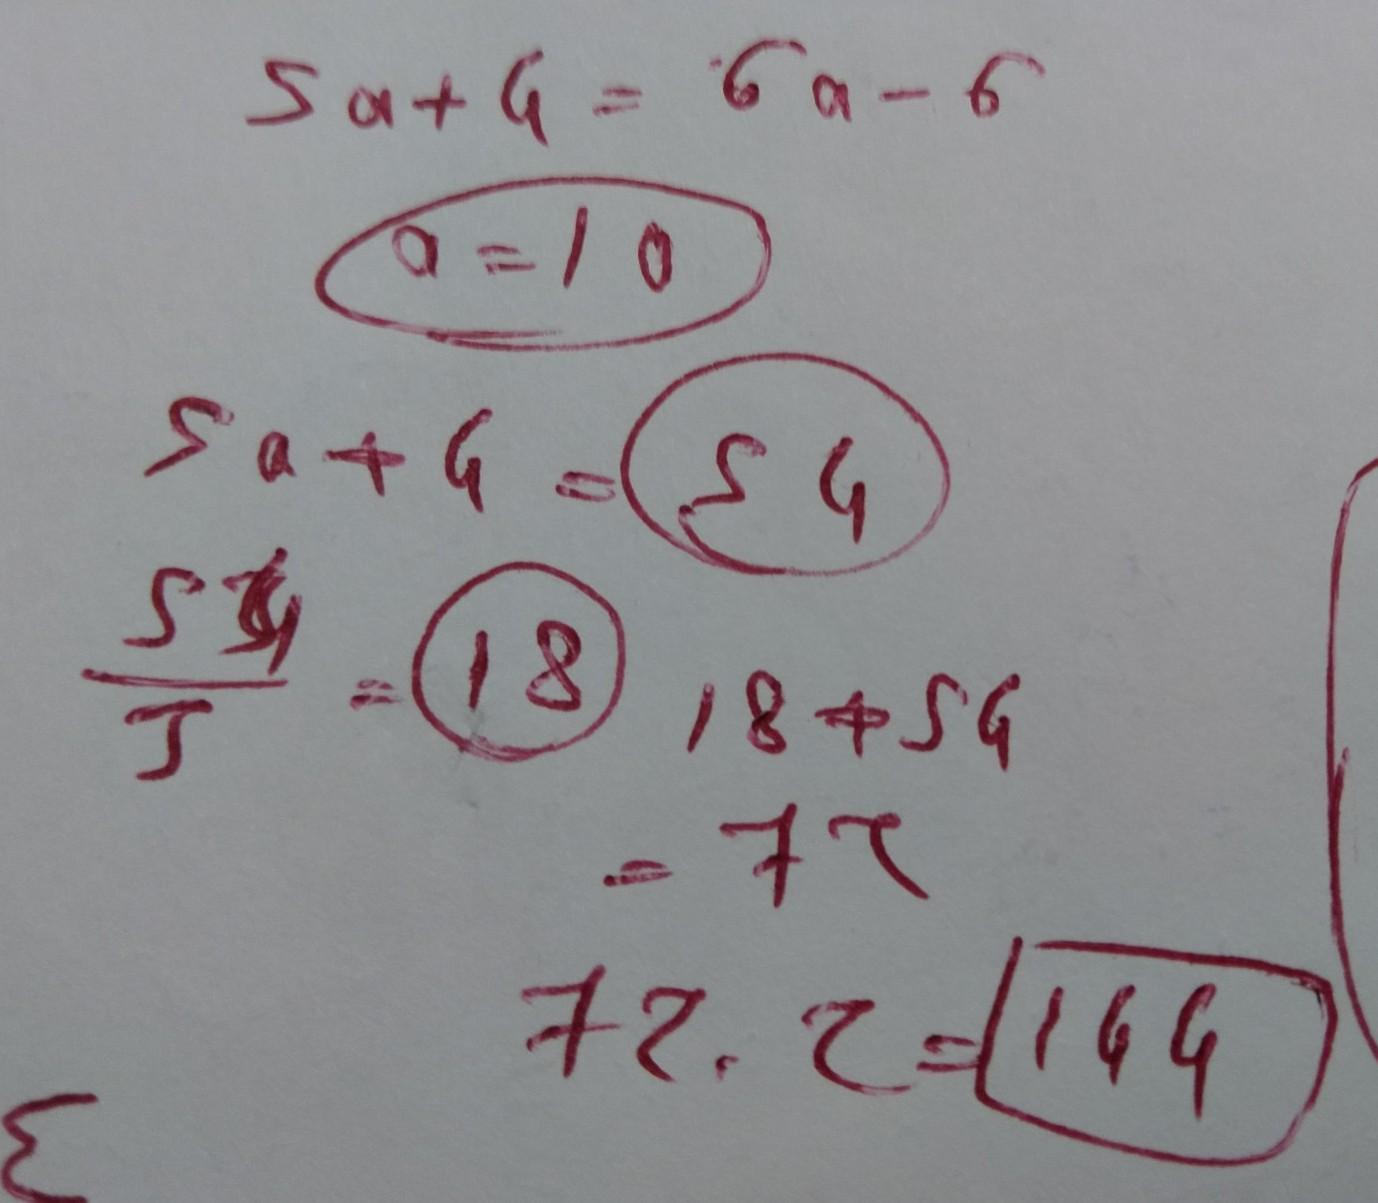 5a+4 = 6a-6
a=10
5a+4 = 54
54/3 = 18 18+54
= 72
72.2=144